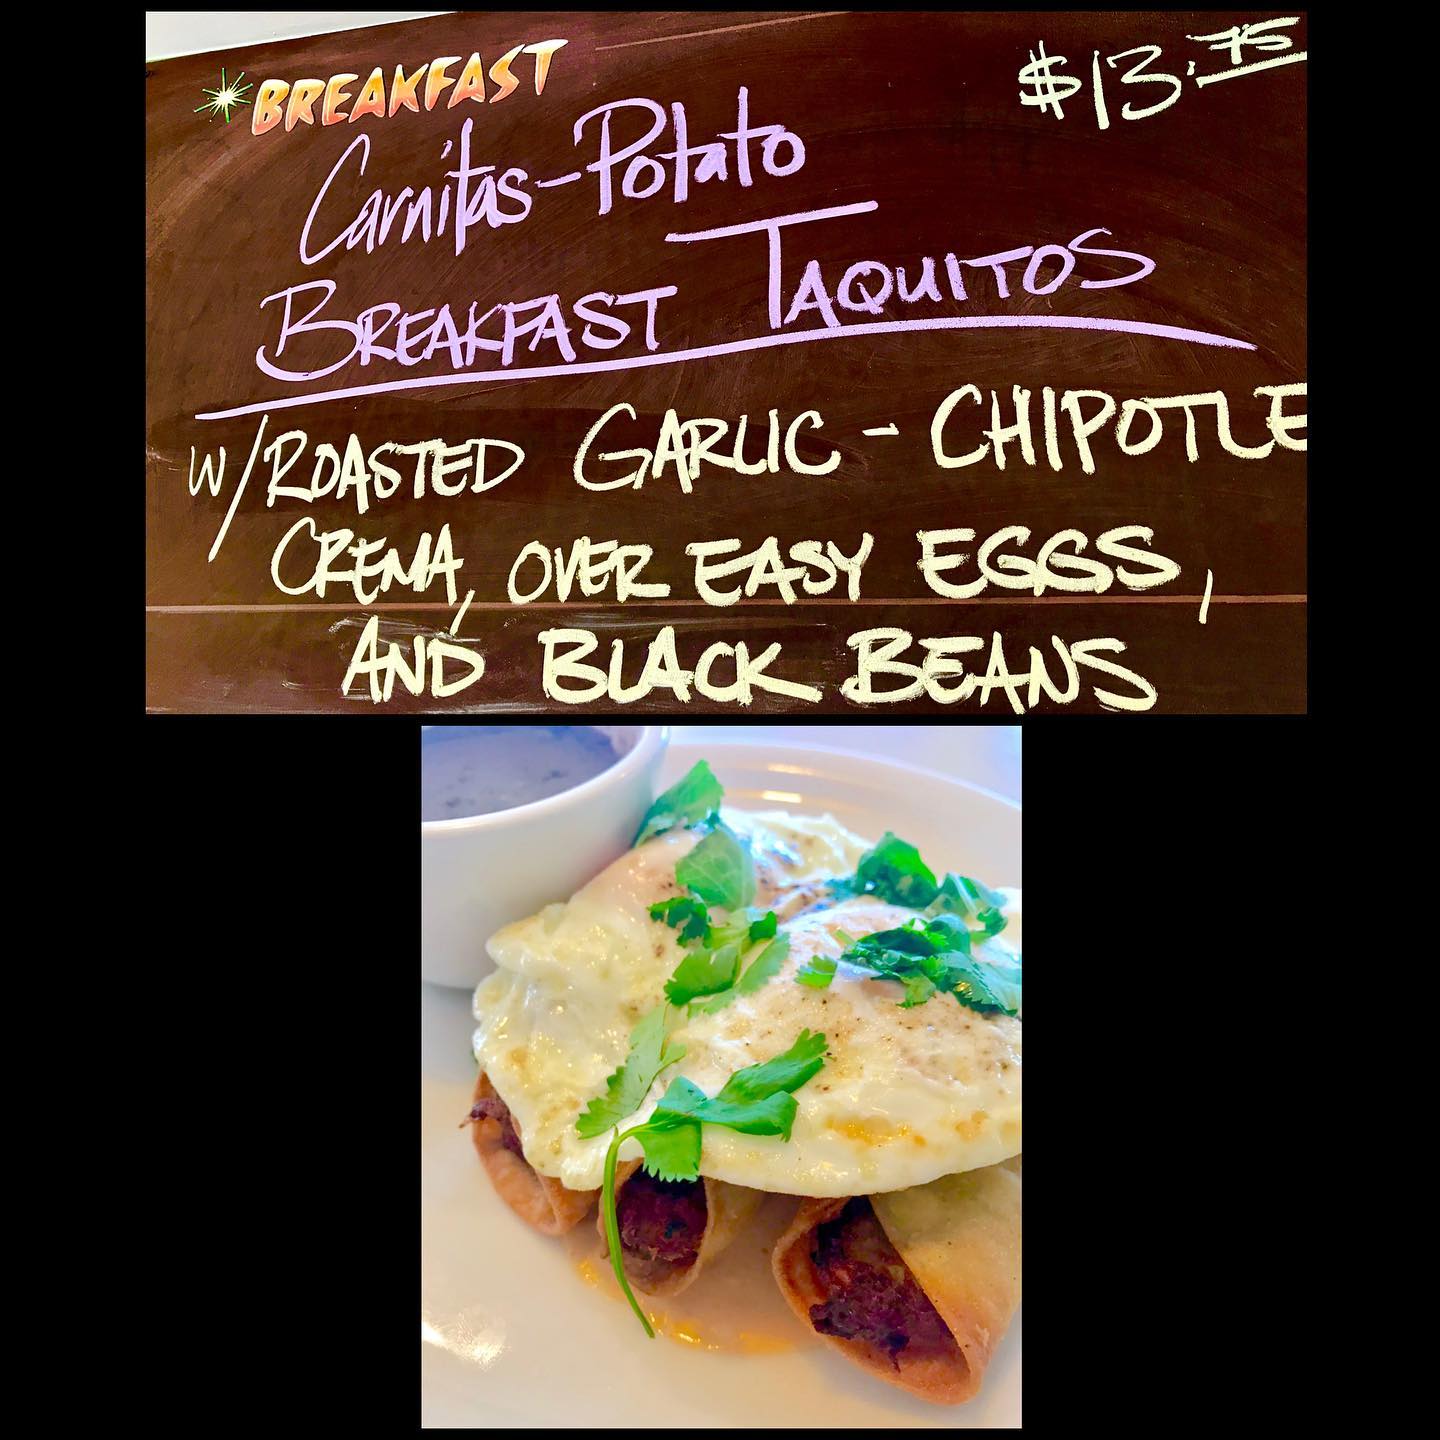 BREAKFAST
$13.75
Carnitas-Potato
BREAKFAST TAQUITOS
W/ROASTED GARLIC - CHIPOTLE
CREMA, OVER EASY EGGS,
AND BLACK BEANS